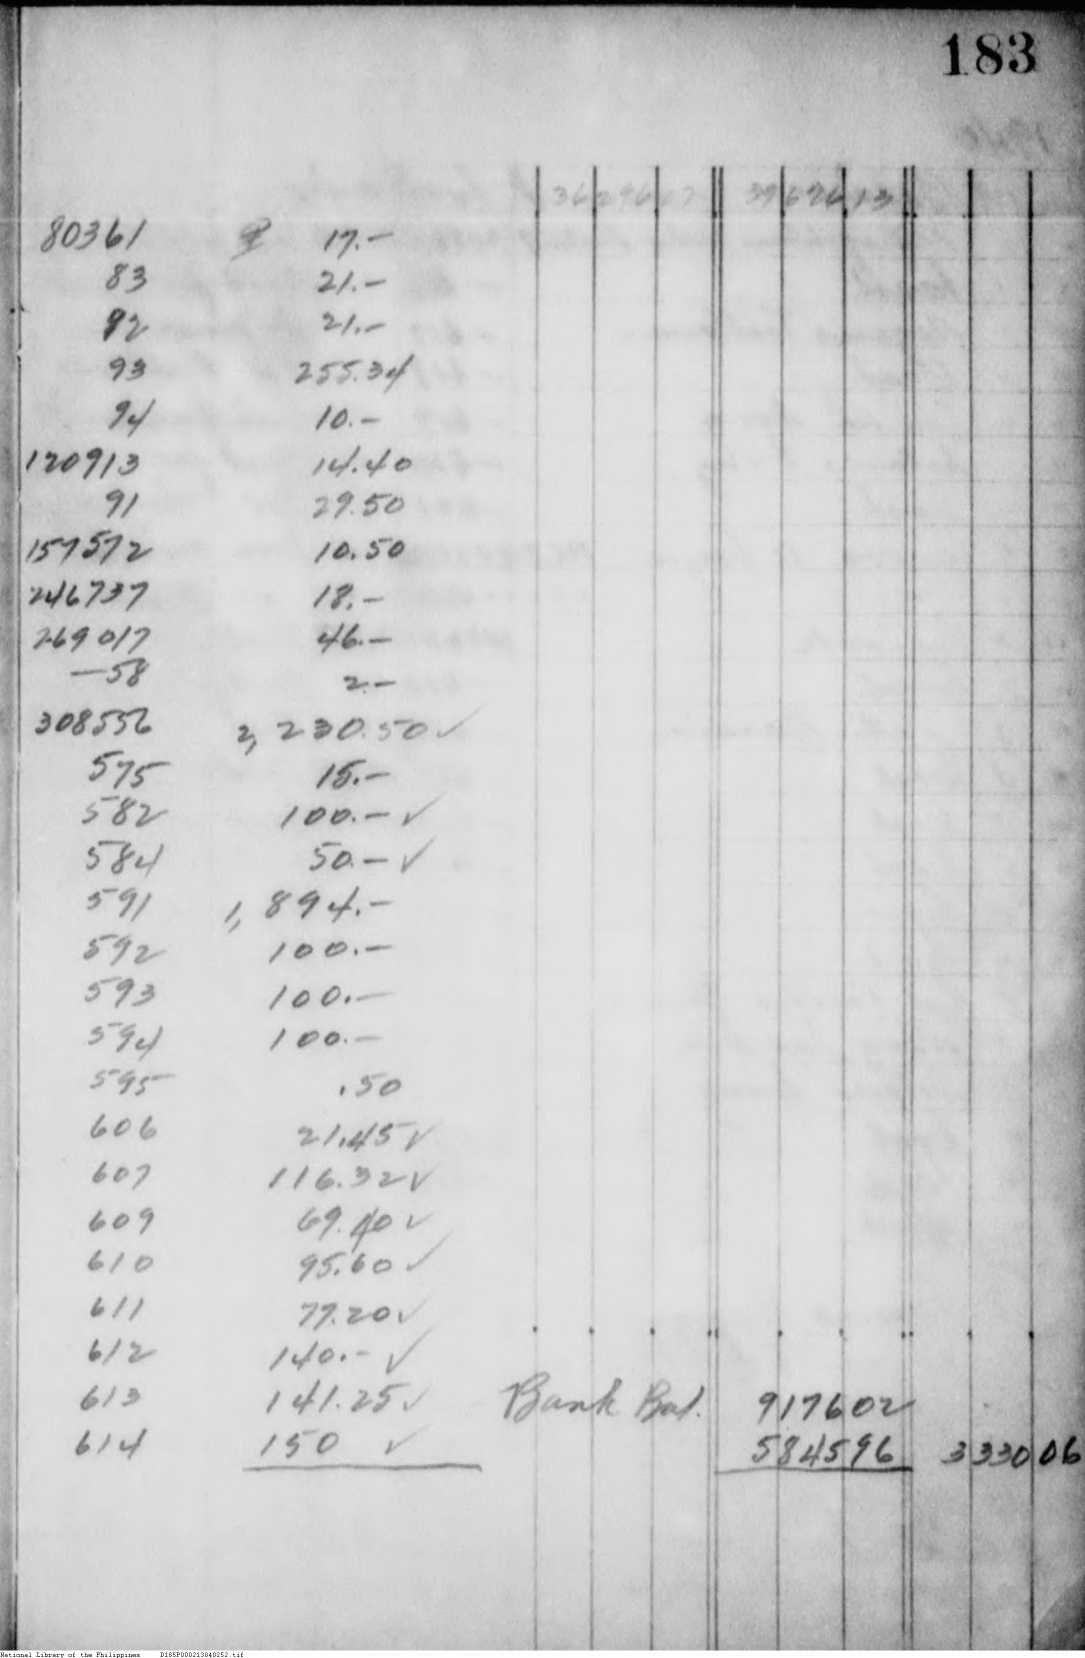 183
3629607 3962613
80361 ₱ 17.-
83 21.-
92 21.-
93 255.34
94 10.-
120913 14.40
91 29.50
157572 10.50
246737 18.-
269017 46.-
-58 2.-
308556 2,230.50✓
575 15.-
582 100.-✓
584 50.-✓
591 1,894.-
592 100.-
593 100.-
594 100.-
595 .50
606 21.45✓
607 116.32✓
609 69.40✓
610 95.60✓
611 77.20✓
612 140.-✓
613 141.25✓ Bank Bal. 917602
614 150 ✓ 584596 333006
National Library of the Philippines D185P000213840252.tif